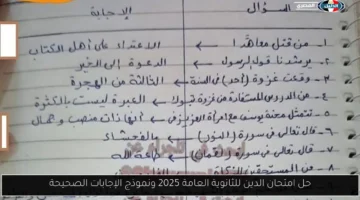 السؤال الإجابة
١- من قتل معاهدا ← الاعتداء على أهل الكتاب
٢- يرشدنا قول الرسول ← الدعوة إلى الخير
٣- وقعت غزوة (أحد) في السنة ← الثالثة من الهجرة
٤- من الدروس المستفادة من غزوة تبوك ← العبرة ليست بالكثرة
٥- تتمثل محنة يوسف مع امرأة العزيز في ← أنها ذات منصب وجمال
٦- قال تعالى في سورة (النور) ← والفحشاء
٧- قال تعالى في سورة (لقمان) ← طاعة الله
٨- من المستحقين للزكاة
حل امتحان الدين للثانوية العامة 2025 ونموذج الإجابات الصحيحة